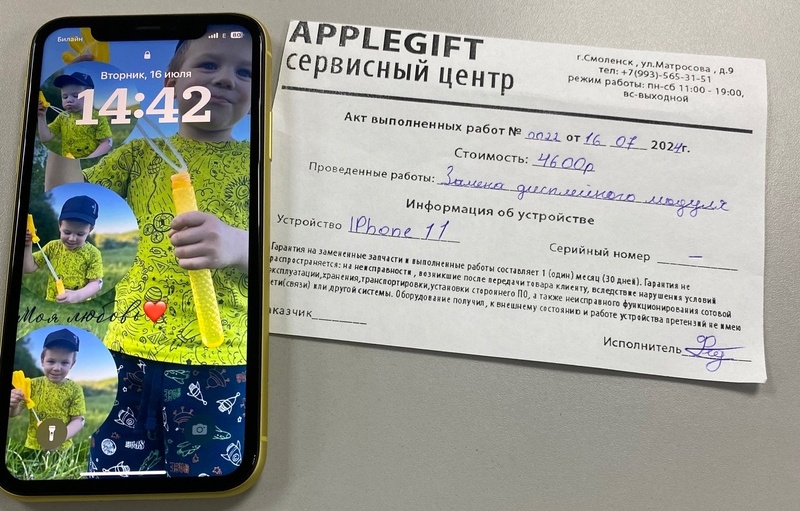 Билайн
E 80
Вторник, 16 июля
14:42
Моя любовь❤️
APPLEGIFT
сервисный центр
г.Смоленск , ул.Матросова , д.9
тел: +7(993)-565-31-51
режим работы: пн-сб 11:00 - 19:00,
вс-выходной
Акт выполненных работ № 0022 от 16 07 2024г.
Стоимость: 4600р
Проведенные работы: Замена дисплейного модуля
Информация об устройстве
Устройство IPhone 11
Серийный номер —
Гарантия на замененные запчасти и выполненные работы составляет 1 (один) месяц (30 дней). Гарантия не
распространяется: на неисправности , возникшие после передачи товара клиенту, вследствие нарушения условий
эксплуатации,хранения,транспортировки,установки стороннего ПО, а также неисправного функционирования сотовой
сети(связи) или другой системы. Оборудование получил, к внешнему состоянию и работе устройства претензий не имею
аказчик
Исполнитель